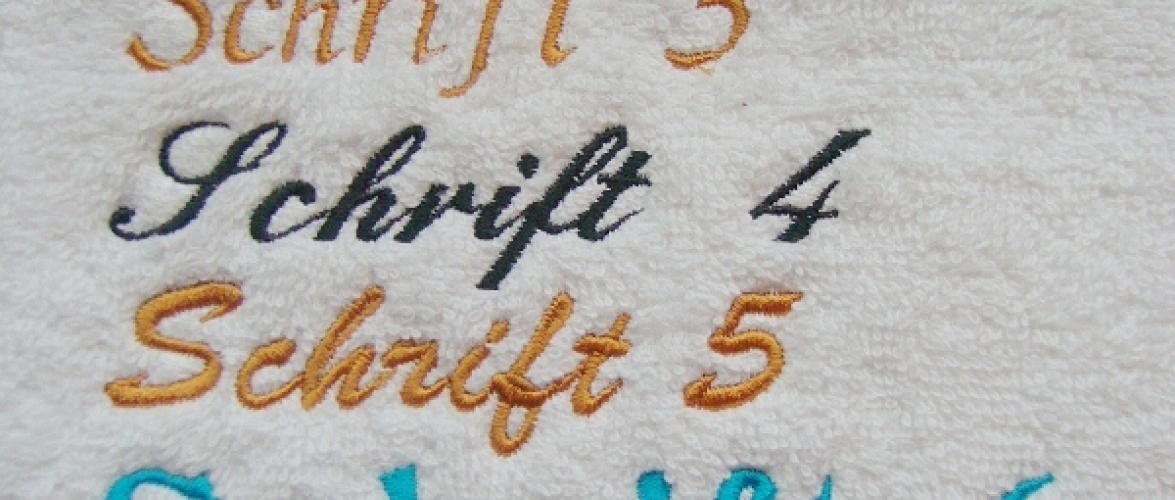 Schrift 3
Schrift 4
Schrift 5